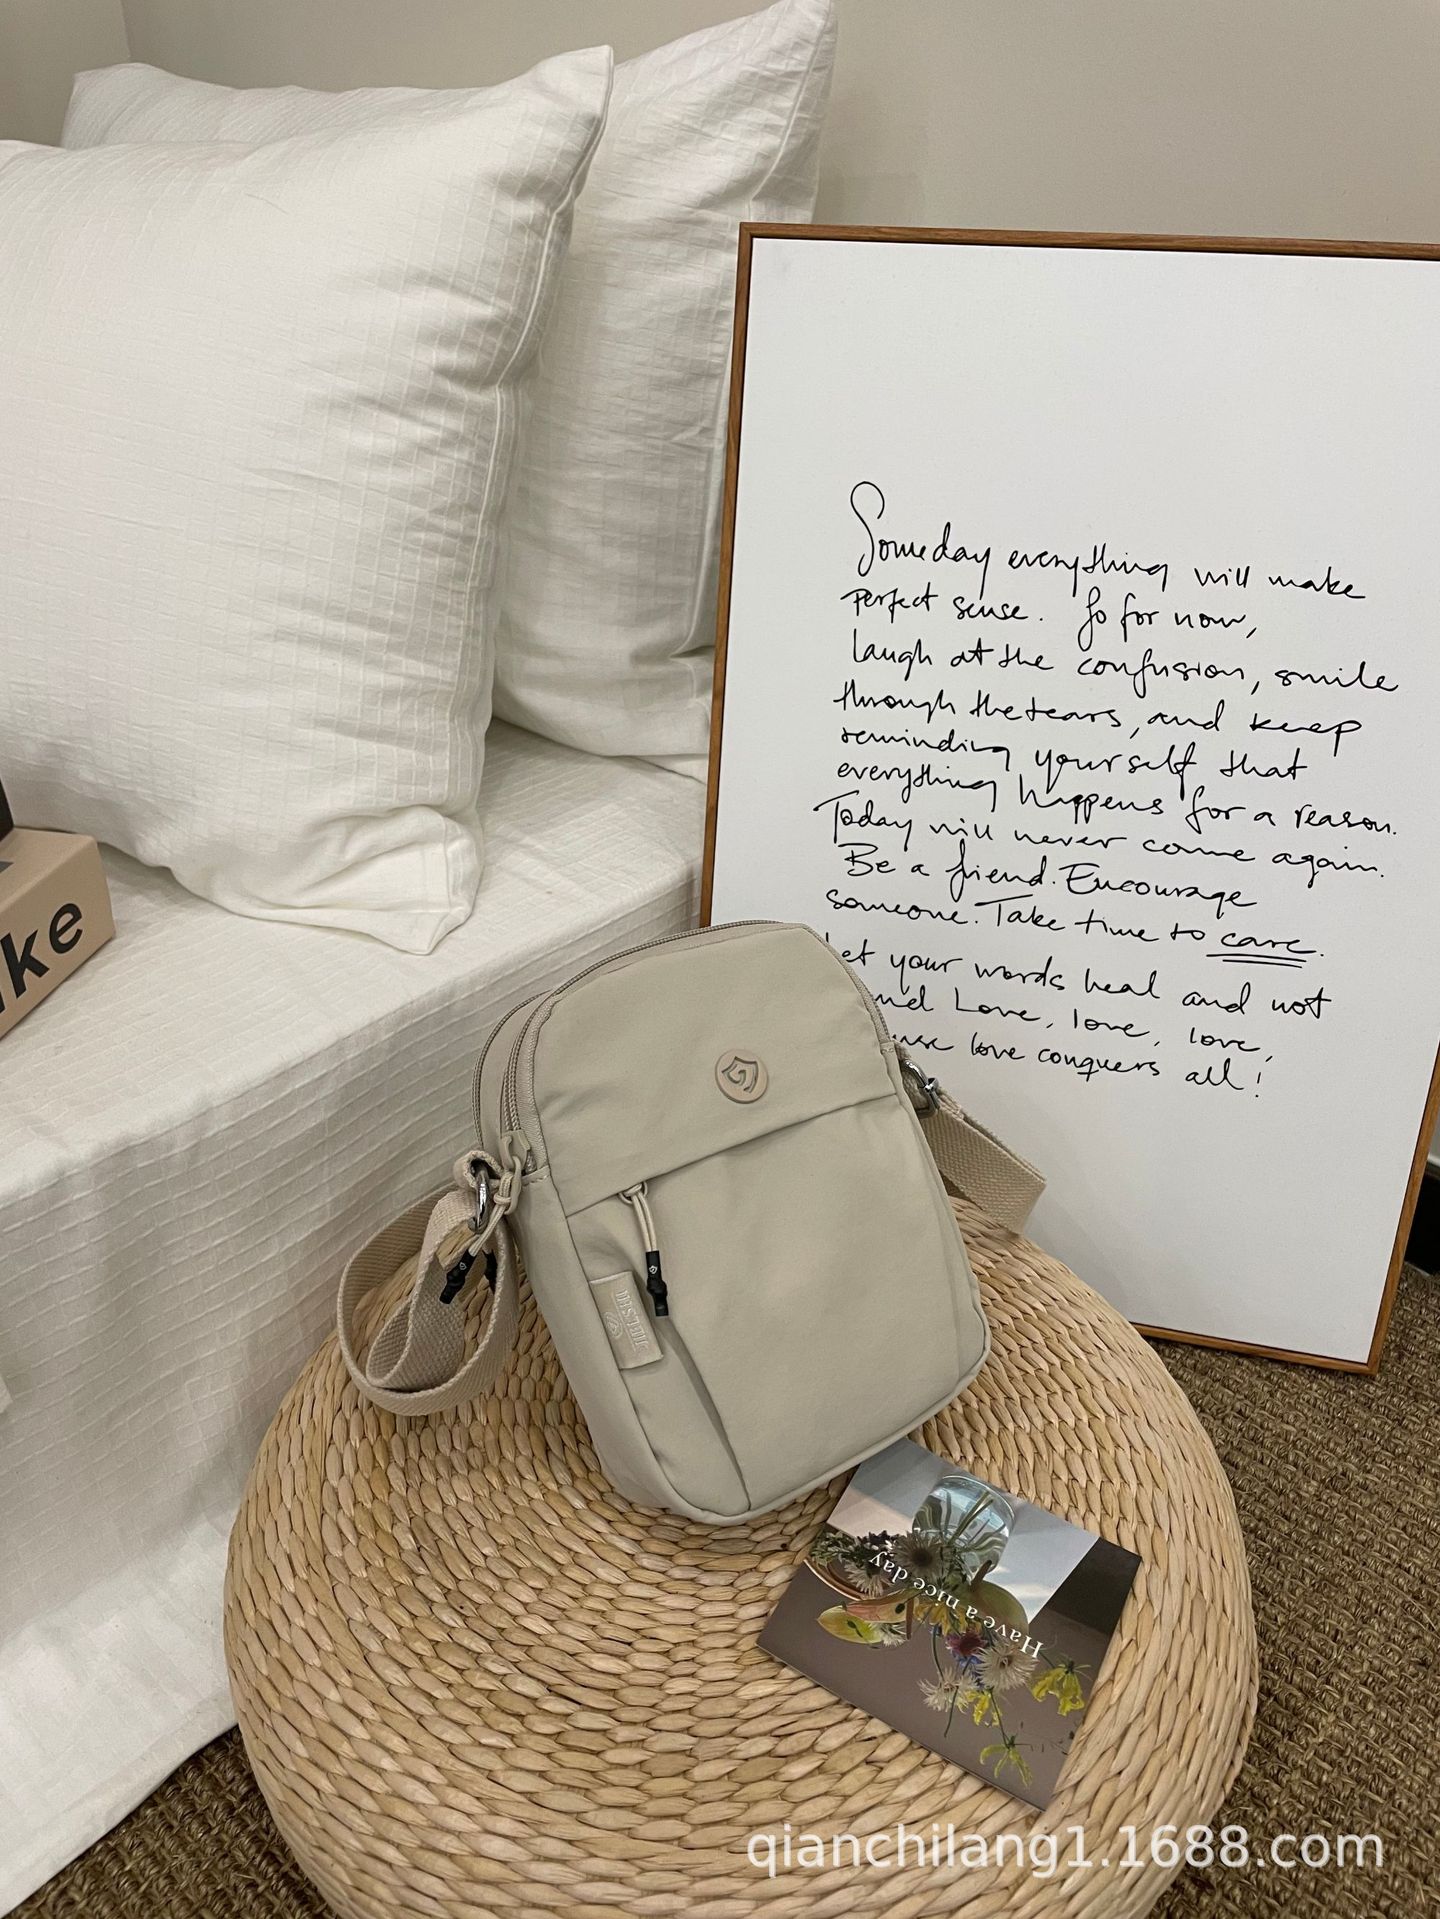 Someday everything will make
perfect sense. So for now,
laugh at the confusion, smile
through the tears, and keep
reminding yourself that
everything happens for a reason.
Today will never come again.
Be a friend. Encourage
someone. Take time to care.
let your words heal and not
Love, love, love,
love conquers all!
ike
Have a nice day
qianchilang1.1688.com